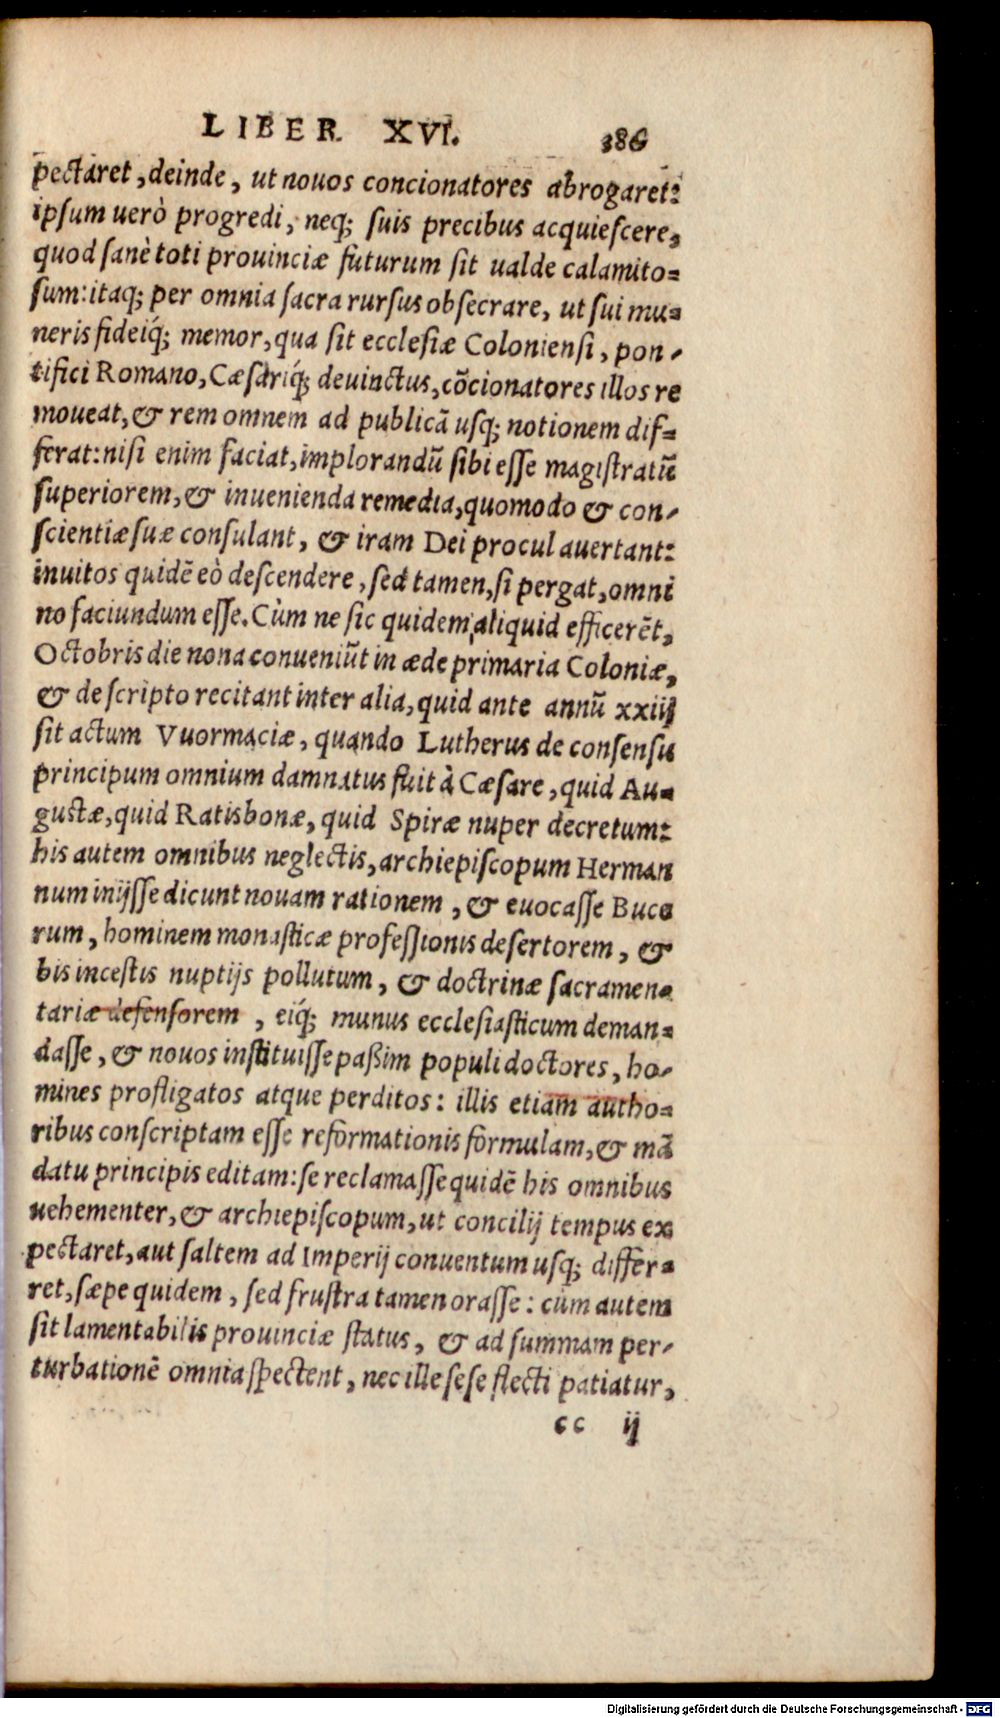 LIBER XVI. 386
pectaret, deinde, ut nouos concionatores abrogaret:
ipsum uerò progredi, neq; suis precibus acquiescere,
quod sanè toti prouinciæ futurum sit ualde calamito=
sum: itaq; per omnia sacra rursus obsecrare, ut sui mu=
neris fideiq́; memor, qua sit ecclesiæ Coloniensi, pon-
tifici Romano, Cæsariq́; deuinctus, cōcionatores illos re
moueat, & rem omnem ad publicā usq; notionem dif=
ferat: nisi enim faciat, implorandū sibi esse magistratū
superiorem, & inuenienda remedia, quomodo & con-
scientiæ suæ consulant, & iram Dei procul auertant:
inuitos quidē eò descendere, sed tamen, si pergat, omni
no faciundum esse. Cùm ne sic quidem aliquid efficerēt,
Octobris die nona conueniūt in æde primaria Coloniæ,
& de scripto recitant inter alia, quid ante annū xxiij
sit actum Vuormaciæ, quando Lutherus de consensu
principum omnium damnatus fuit à Cæsare, quid Au=
gustæ, quid Ratisbonæ, quid Spiræ nuper decretum:
his autem omnibus neglectis, archiepiscopum Herman
num inijsse dicunt nouam rationem, & euocasse Buce
rum, hominem monasticæ professionis desertorem, &
bis incestis nuptijs pollutum, & doctrinæ sacramen=
tariæ defensorem, eiq́; munus ecclesiasticum deman=
dasse, & nouos instituisse paßim populi doctores, ho-
mines profligatos atque perditos: illis etiam autho=
ribus conscriptam esse reformationis formulam, & mā
datu principis editam: se reclamasse quidē his omnibus
uehementer, & archiepiscopum, ut concilij tempus ex
pectaret, aut saltem ad Imperij conuentum usq; differ=
ret, sæpe quidem, sed frustra tamen orasse: cùm autem
sit lamentabilis prouinciæ status, & ad summam per-
turbationē omnia spectent, nec ille sese flecti patiatur,
cc ij
Digitalisierung gefördert durch die Deutsche Forschungsgemeinschaft - DFG